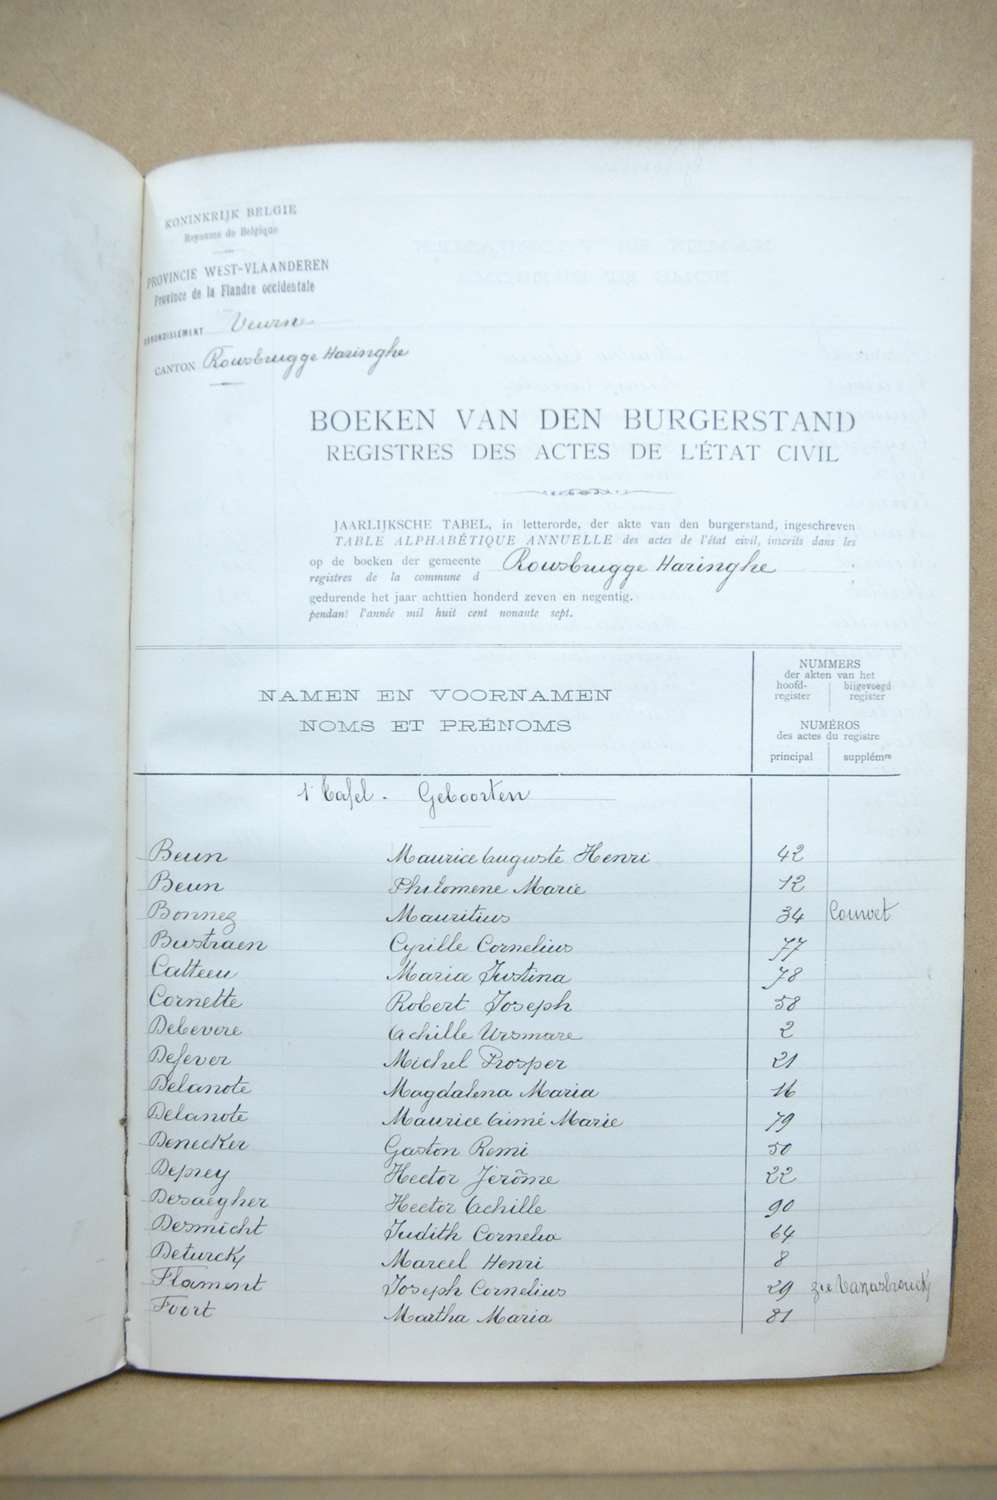 KONINKRIJK BELGIE
Royaume de Belgique
PROVINCIE WEST-VLAANDEREN
Province de la Flandre occidentale
ARRONDISSEMENT Veurne
CANTON Rousbrugge Haringhe
BOEKEN VAN DEN BURGERSTAND
REGISTRES DES ACTES DE L'ÉTAT CIVIL
JAARLIJKSCHE TABEL, in letterorde, der akte van den burgerstand, ingeschreven
TABLE ALPHABÉTIQUE ANNUELLE des actes de l'état civil, inscrits dans les
op de boeken der gemeente Rousbrugge Haringhe
registres de la commune d
gedurende het jaar achttien honderd zeven en negentig.
pendant l'année mil huit cent nonante sept.
NAMEN EN VOORNAMEN
NOMS ET PRÉNOMS
NUMMERS
der akten van het
hoofd-register bijgevoegd register
NUMÉROS
des actes du registre
principal supplémre
1e Tafel. Geboorten
Beun Maurice Auguste Henri 42
Beun Philomene Marie 12
Bonnez Mauritius 34 Couvet
Bustraen Cyrille Cornelius 77
Catteeu Maria Justina 78
Cornette Robert Joseph 58
Debevere Achille Ursmare 2
Defever Michel Prosper 21
Delanote Magdalena Maria 16
Delanote Maurice Aimé Marie 79
Denecker Gaston Remi 50
Deprey Hector Jérôme 22
Desaegher Hector Achille 90
Desmicht Judith Cornelia 64
Deturck Marcel Henri 8
Flament Joseph Cornelius 29 zie
Foort Martha Maria 81